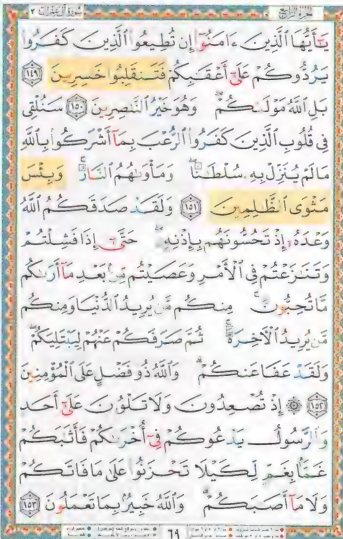 سُورَةُ آلِ عِمْرَانَ ٣ الجُزْءُ الرَّابِعُ
يَـٰٓأَيُّهَا ٱلَّذِينَ ءَامَنُوٓا۟ إِن تُطِيعُوا۟ ٱلَّذِينَ كَفَرُوا۟
يَرُدُّوكُمْ عَلَىٰٓ أَعْقَـٰبِكُمْ فَتَنقَلِبُوا۟ خَـٰسِرِينَ ١٤٩
بَلِ ٱللَّهُ مَوْلَىٰكُمْ ۖ وَهُوَ خَيْرُ ٱلنَّـٰصِرِينَ ١٥٠ سَنُلْقِى
فِى قُلُوبِ ٱلَّذِينَ كَفَرُوا۟ ٱلرُّعْبَ بِمَآ أَشْرَكُوا۟ بِٱللَّهِ
مَا لَمْ يُنَزِّلْ بِهِۦ سُلْطَـٰنًا ۖ وَمَأْوَىٰهُمُ ٱلنَّارُ ۚ وَبِئْسَ
مَثْوَى ٱلظَّـٰلِمِينَ ١٥١ وَلَقَدْ صَدَقَكُمُ ٱللَّهُ
وَعْدَهُۥٓ إِذْ تَحُسُّونَهُم بِإِذْنِهِۦ ۖ حَتَّىٰٓ إِذَا فَشِلْتُمْ
وَتَنَـٰزَعْتُمْ فِى ٱلْأَمْرِ وَعَصَيْتُم مِّنۢ بَعْدِ مَآ أَرَىٰكُم
مَّا تُحِبُّونَ ۚ مِنكُم مَّن يُرِيدُ ٱلدُّنْيَا وَمِنكُم
مَّن يُرِيدُ ٱلْـَٔاخِرَةَ ۚ ثُمَّ صَرَفَكُمْ عَنْهُمْ لِيَبْتَلِيَكُمْ ۖ
وَلَقَدْ عَفَا عَنكُمْ ۗ وَٱللَّهُ ذُو فَضْلٍ عَلَى ٱلْمُؤْمِنِينَ
١٥٢ ۞ إِذْ تُصْعِدُونَ وَلَا تَلْوُۥنَ عَلَىٰٓ أَحَدٍ
وَٱلرَّسُولُ يَدْعُوكُمْ فِىٓ أُخْرَىٰكُمْ فَأَثَـٰبَكُمْ
غَمًّۢا بِغَمٍّ لِّكَيْلَا تَحْزَنُوا۟ عَلَىٰ مَا فَاتَكُمْ
وَلَا مَآ أَصَـٰبَكُمْ ۗ وَٱللَّهُ خَبِيرٌۢ بِمَا تَعْمَلُونَ ١٥٣
٦٩